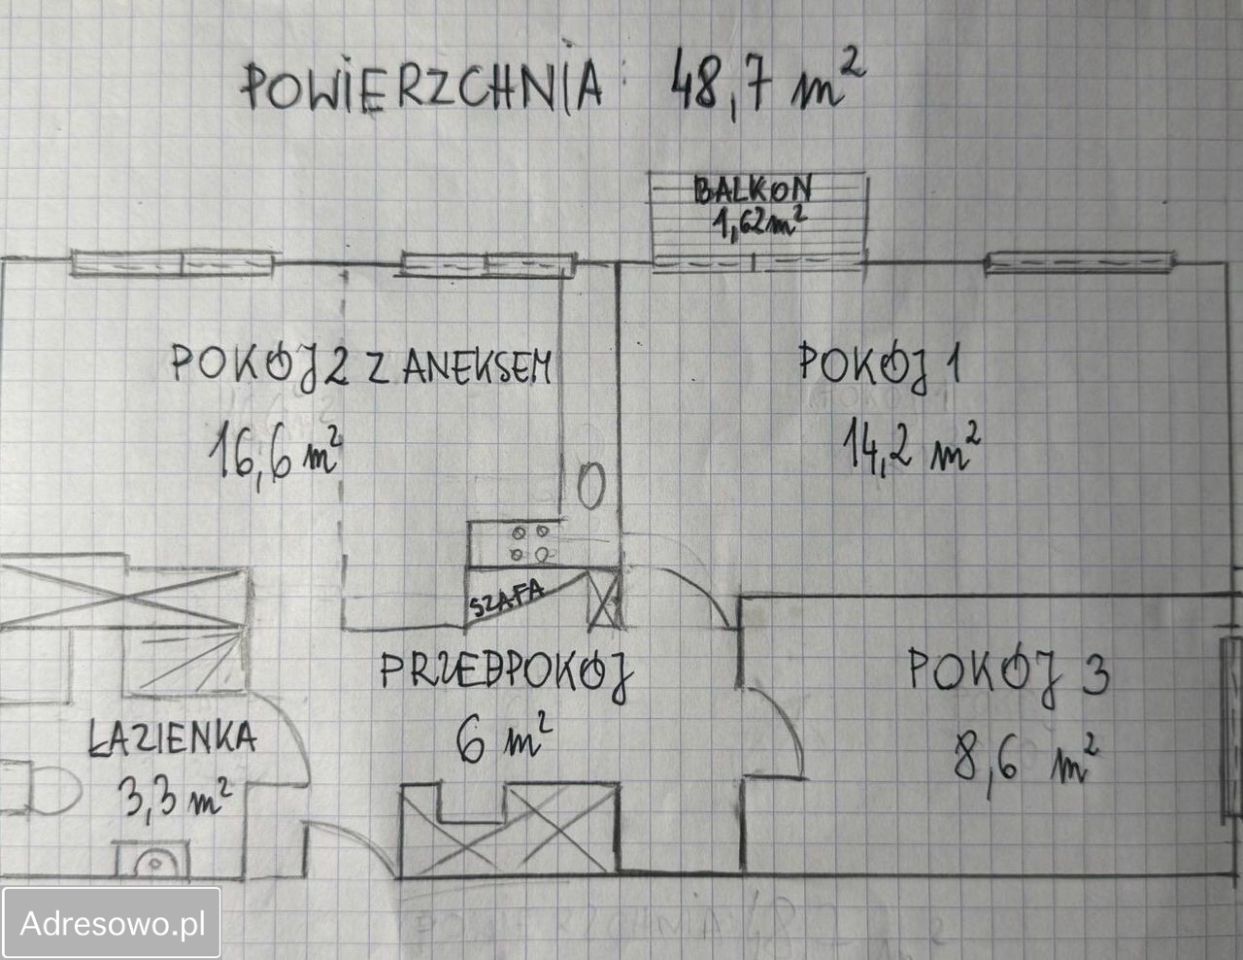 POWIERZCHNIA: 48,7 m²
BALKON
1,62m²
POKÓJ 2 Z ANEKSEM
16,6 m²
POKÓJ 1
14,2 m²
SZAFA
PRZEDPOKÓJ
6 m²
POKÓJ 3
8,6 m²
ŁAZIENKA
3,3 m²
Adresowo.pl